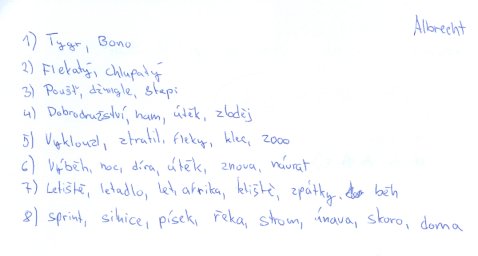 Albrecht
1) Tygr, Bono
2) Flekatý, chlupatý
3) Poušť, džungle, stepi
4) Dobrodružství, ham, útěk, zloděj
5) Vyklouzl, ztratil, fleky, klec, zooo
6) Výběh, noc, díra, útěk, znova, návrat
7) Letiště, letadlo, let, afrika, letiště, zpátky, běh
8) sprint, silnice, písek, řeka, strom, únava, skoro, doma